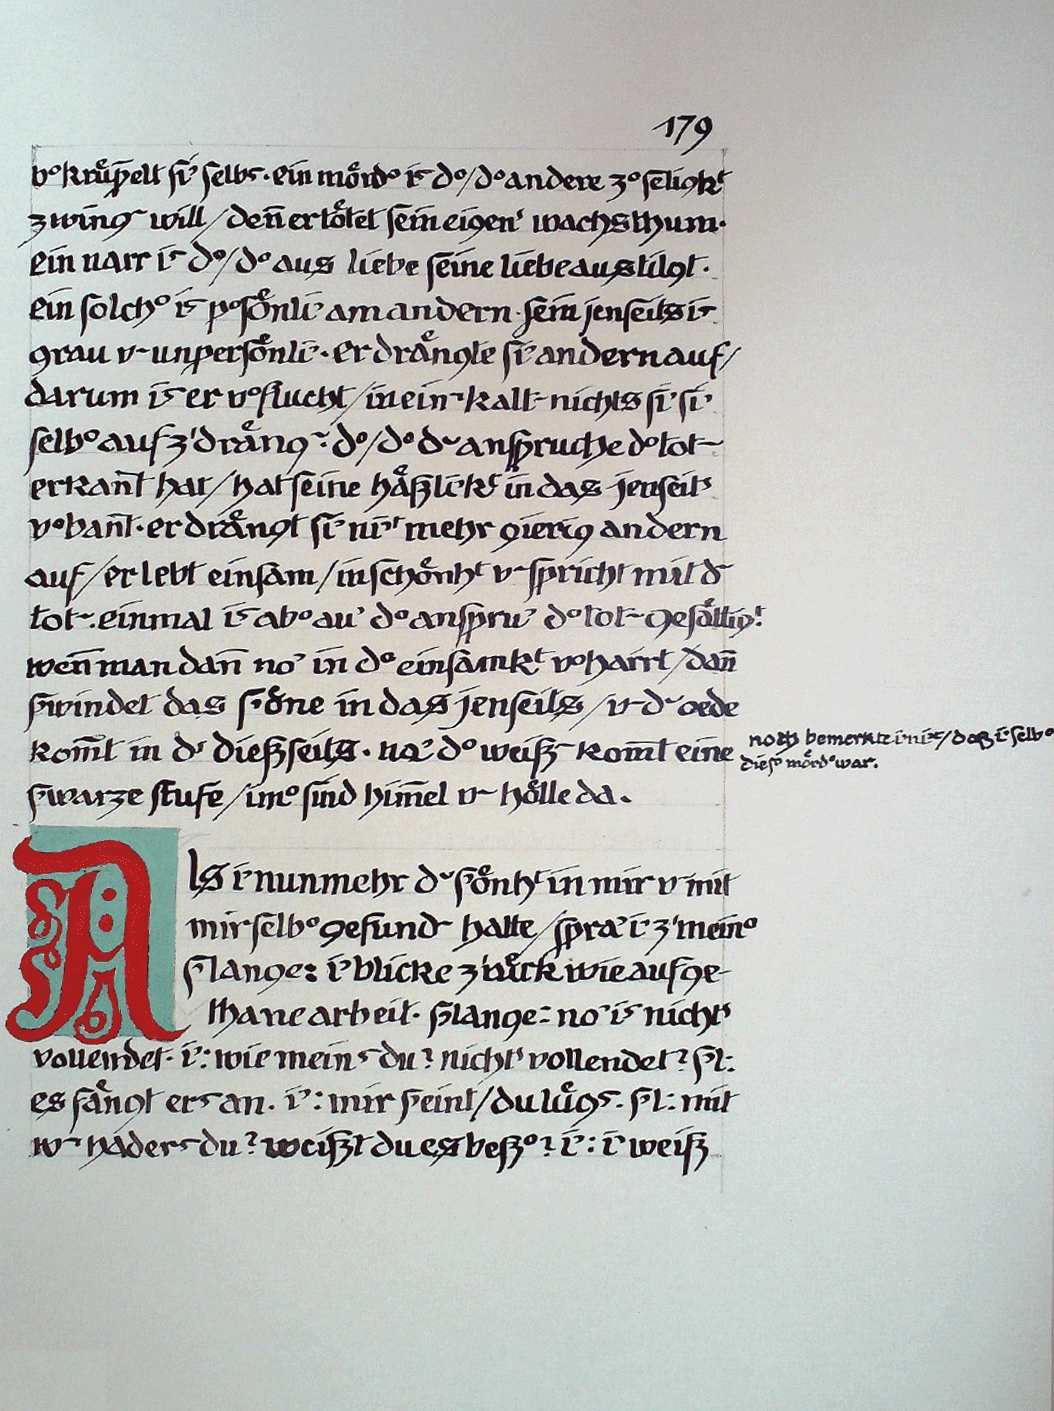 179
v°krůp̄elt sī selbs· ein mőrd° is d°/d° andere z° seligkt
zwing' will/den̄ er tőtet sein eigen' wachsthum·
ein narr is d°/d° aus liebe seine liebe austilgt·
ein solch° is p°sőnlī am andern· sein jenseits is
grau v~ unpersőnlī· er drångte sī andern auf/
darum is er v°flucht/in ein~ kalt~ nichts sī sī
selb° auf z' dräng~· d°/d° d~ ansprüche d° tot~
erkan̄t hat/hat seine håßlichkt in das jenseits
v°ban̄t· er drångt sī nī mehr gierig andern
auf/er lebt einsam/in schőnht v~ spricht mit d~
tot~·einmal is ab° au' d° anspru' d° tot~ gesåttigt·
wen̄ man dan̄ no' in d° einsamkt v°harrt/dan̄
s'windet das s'őne in das jenseits/v~ d~ oede
kom̄t in d~ dießseits· na' d° weiß~ kom̄t eine
s'warze stufe/im° sind him̄el v~ hőlle da·
noch bemerkte ī nīt/daß ī selb°
dies° mőrd° war.
Als ī nunmehr d~ s'őnht in mir v~ mit
mir selb° gefund~ hatte/spra' ī z' mein°
s'lange: ī blicke z'růck wie auf ge-
thane arbeit· s'lange: no' is nichts
vollendet· ī: wie meins du? nichts vollendet? sl:
es fångt ers an. ī: mir s'eint/du lůgs· sl: mit
w~ haders du? weißt du es beß°? ī: ī weiß